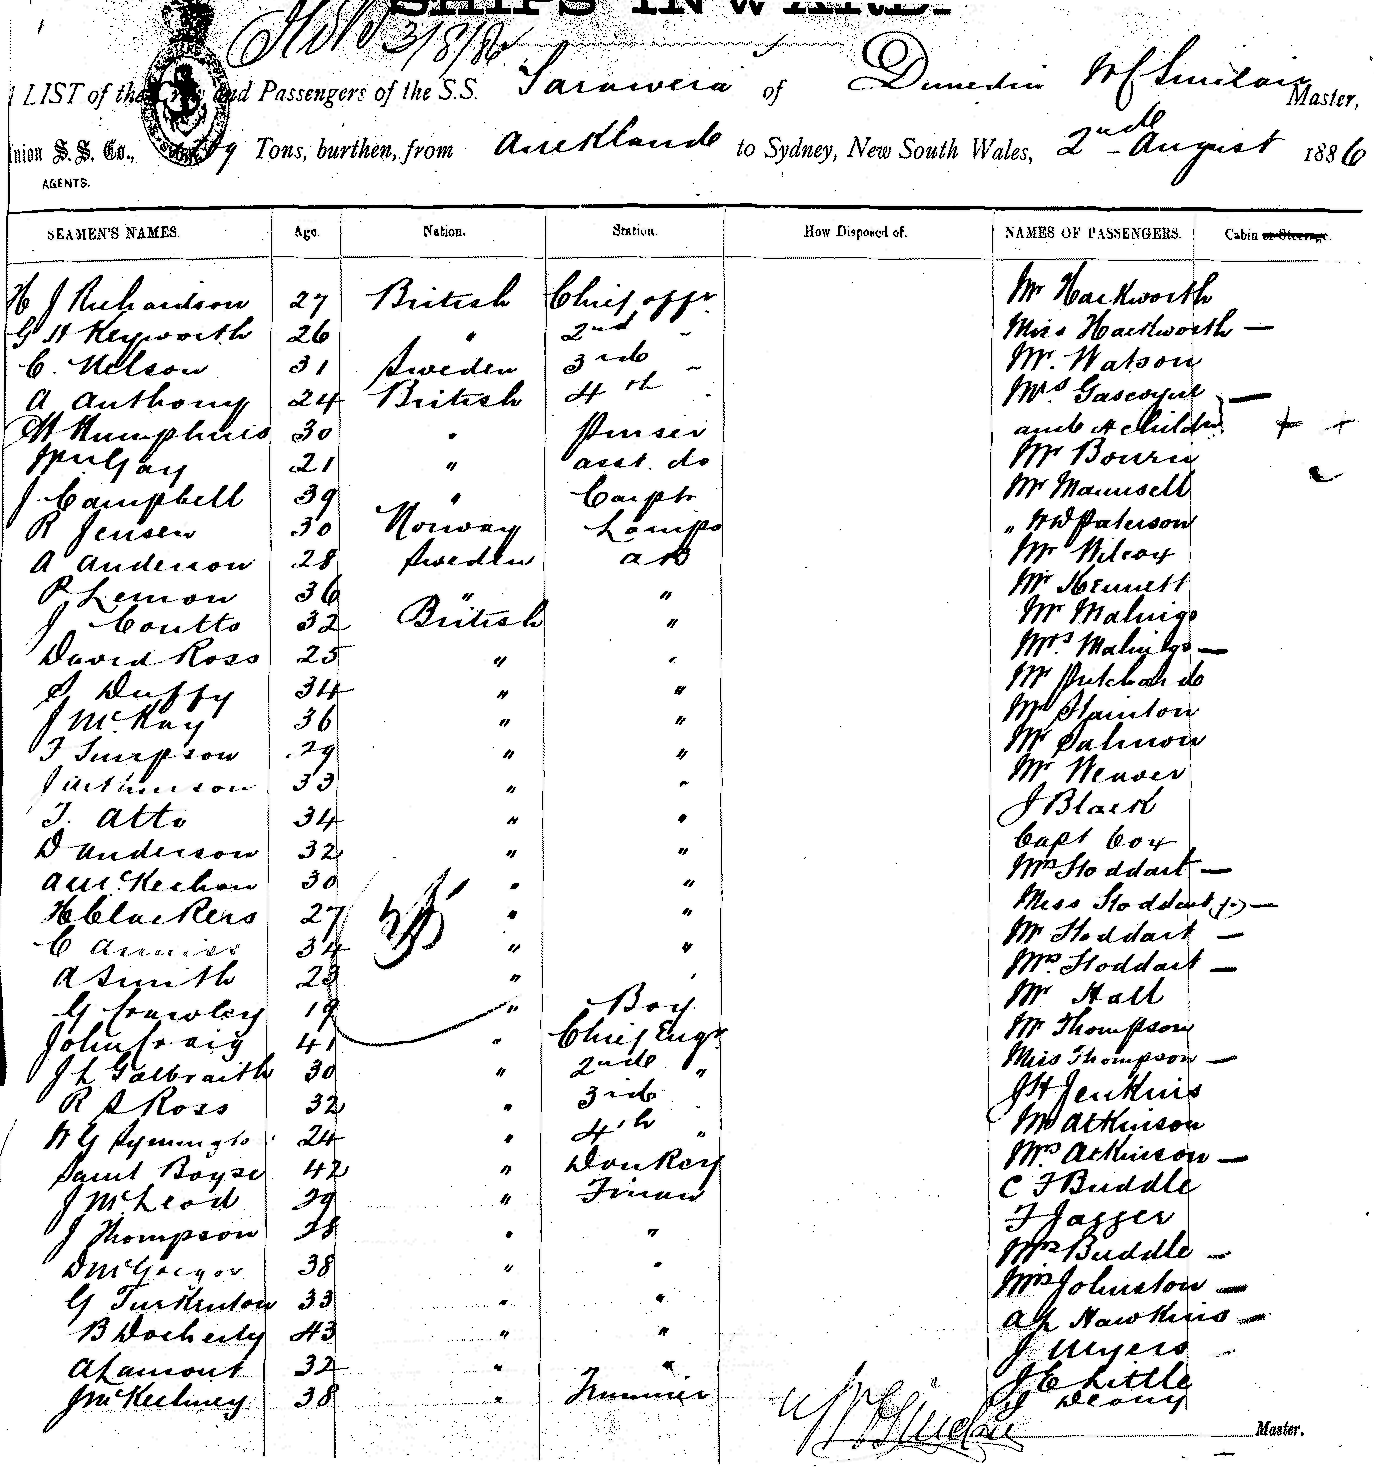 SHIPS INWARD.
3/8/86
LIST of the Crew and Passengers of the S.S. Tarawera of Dunedin W C Sinclair Master,
Union S. S. Co., Tons, burthen, from Auckland to Sydney, New South Wales, 2nd August 1886
AGENTS.
SEAMEN'S NAMES. Age. Nation. Station. How Disposed of. NAMES OF PASSENGERS. Cabin or Steerage.
H J Richardson 27 British Chief offr. Mr Hackworth
G H Keyworth 26 " 2nd " Miss Hackworth —
C. Nelson 31 Sweden 3rd " Mr. Watson
A Anthony 24 British 4th " Mrs Gascoyne —
H Humphries 30 " Purser and 4 childn
Wm Gay 21 " asst. do Mr Bourn
J Campbell 39 " Carptr Mr Maunsell
R Jensen 30 Norway Lamps " W W Paterson
A Anderson 28 Sweden AB Mr Wilcox
P Lemon 36 " " Mr Kennett
J Coutts 32 British " Mr Malings
David Ross 25 " " Mrs Malings —
S Duffy 34 " " Mr Pritchard
J McKay 36 " " Mr Stainton
T Simpson 29 " " Mr Salmon
33 " " Mr Weaver
T. Atto 34 " " J Black
D Anderson 32 " " Capt Cox
A McKechon 30 " " Mrs Stoddart —
H Clackers 27 " " Miss Stoddart —
C Anniss 34 " " Mr Stoddart —
A Smith 23 " " Mrs Stoddart —
G Crawley 19 " Boy Mr Hall
John Craig 41 " Chief Engr. Mr Thompson
J L Galbraith 30 " 2nd " Miss Thompson —
R S Ross 32 " 3rd " J H Jenkins
W G Symington 24 " 4th " Mr Atkinson
Saml Boyse 42 " Donkey Mrs Atkinson —
J McLeod 39 " Firman C F Buddle
J Thompson 28 " " F Jagger
D McGregor 38 " " Mrs Buddle —
G Turkinton 33 " " Mrs Johnston —
B Docherty 43 " " A L Hawkins —
A Lamont 32 " " J Myers
J McKechney 38 " Trimmer J C Little
J Deany
W C Sinclair Master.